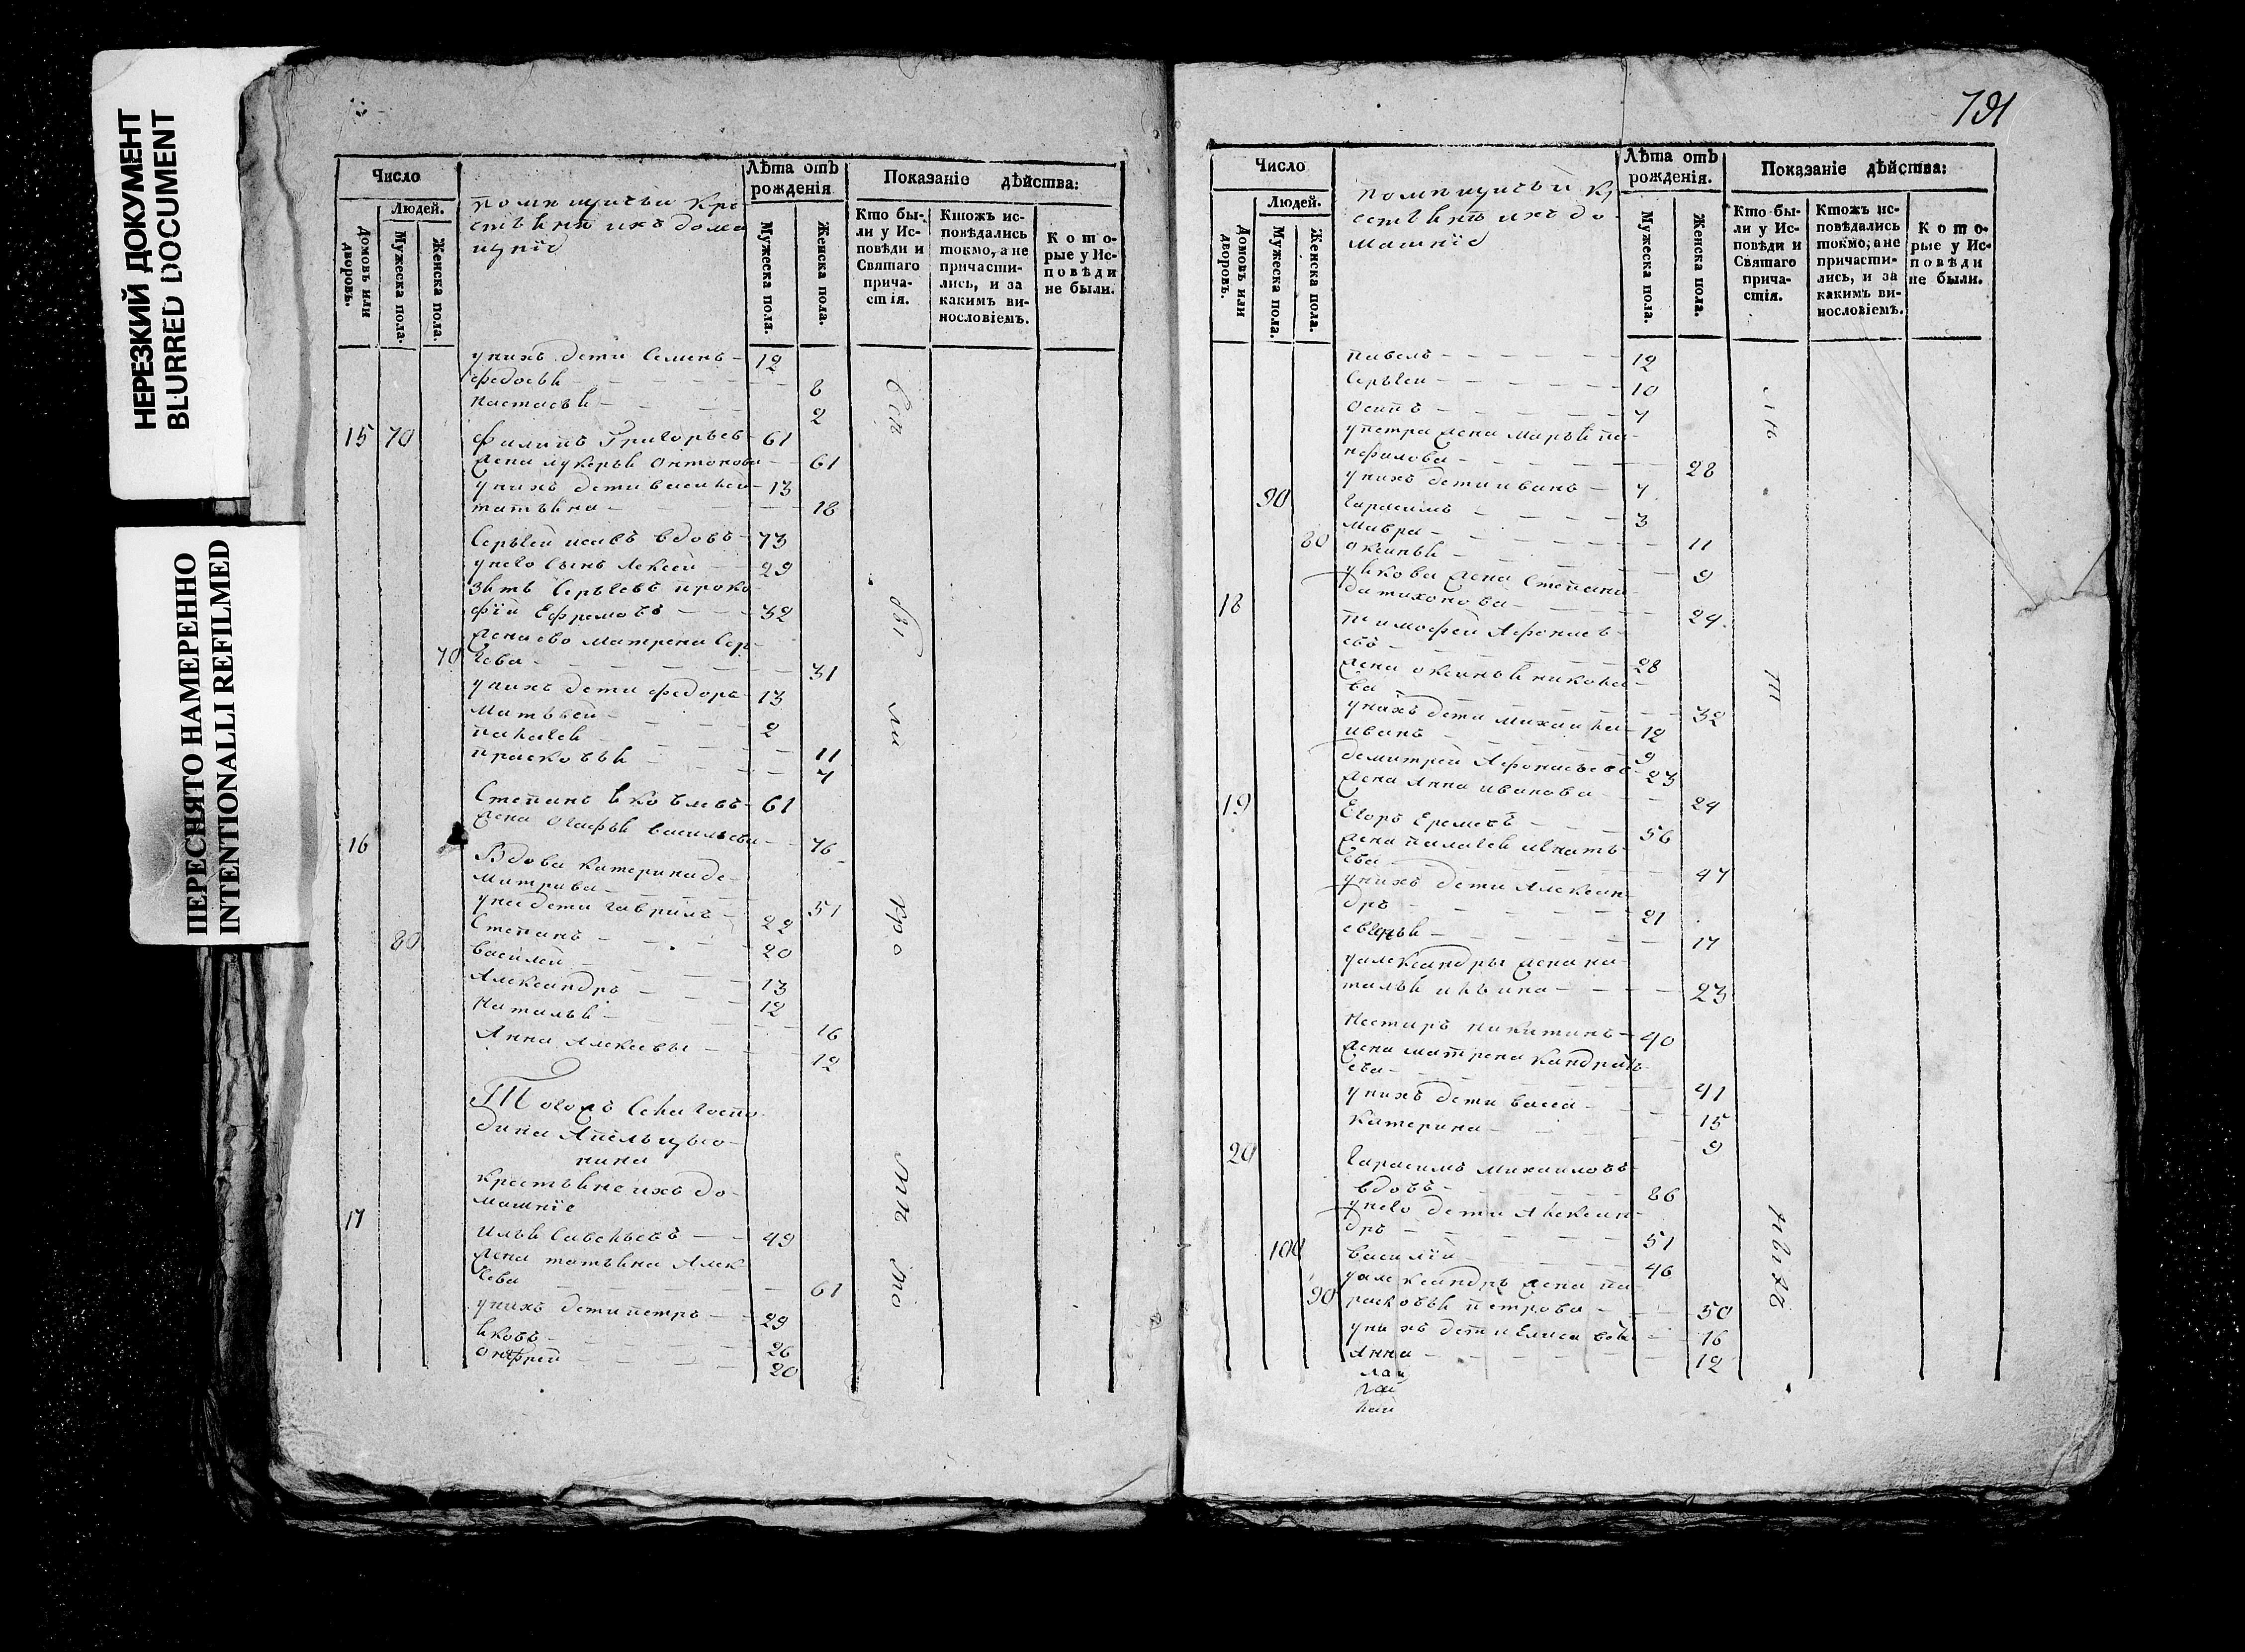 НЕРЕЗКИЙ ДОКУМЕНТ
BLURRED DOCUMENT
ПЕРЕСНЯТО НАМЕРЕННО
INTENTIONALLI REFILMED
Число
Людей.
Домовъ или дворовъ.
Мужеска пола.
Женска пола.
помпщичьи кре-
стьяня ихъ дома
щнiе
Лѣта отъ рожденія
Мужеска пола.
Женска пола.
Показаніе дѣйства:
Кто бы-
ли у Ис-
повѣди и
Святаго
прича-
стія.
Ктожъ ис-
повѣдались
токмо, а не
причасти-
лись, и за
какимъ ви-
нословіемъ.
Кото-
рые у Ис-
повѣди
не были.
унихъ дети Семенъ 12
федосья 8
настасья 2
15 70 филипъ Григорьев 61
жена лукерья онтонова 61
унихъ дети василей 13
татьяна 18
Сергей исавъ вдовъ 73
унего сынъ Лексей 29
зять Сергеевъ проко
фїй Ефремовъ 32
жена ево матрена Сер
70 геева 31
унихъ дети федоръ 13
матьвей 2
палагея 11
прасковья 7
Степанъ яковлевъ 61
16 жена огафья васильева 76
Вдова катерина де-
митрива 51
унее дети гаврилъ 22
Степанъ 20
80 василей 13
Александръ 12
наталья 16
Анна Алексевы 12
Тогожъ села госпо
дина Апельцыо-
нина
крестьяне ихъ до-
машнiе
17
илья Савельевъ 49
жена татьяна Алек
геева 61
унихъ дети петръ 29
яковъ 26
онфрей 20
731
Число
Людей.
Домовъ или дворовъ.
Мужеска пола.
Женска пола.
помпщичьи к
естьянъ ихъ до-
машнiе
Лѣта отъ рожденія.
Мужеска пола.
Женска пола.
Показаніе дѣйства:
Кто бы-
ли у Ис-
повѣди и
Святаго
прича-
стія.
Ктожъ ис-
повѣдались
токмо, а не
причасти-
лись, и за
какимъ ви-
нословіемъ.
Кото-
рые у Ис-
повѣди
не были.
павелъ 12
Сергей 10
осипъ 7
упетра жена марья па-
нфилова 28
унихъ дети иванъ 7
90 гарасимъ 3
мавра 11
80 оксинья 9
уякова жена Степани
да тихонова 24
18 тимофей Афонась-
евъ 28
жена оксинья никола-
ва 32
унихъ дети михаила 12
иванъ 9
демитрей Афонасьевъ 23
жена Анна иванова 24
19 Егоръ Еремевъ 56
жена палагея игнать-
ева 47
унихъ дети Алексан-
дръ 21
евгенья 17
уалександры жена на-
талья ильина 23
нестиръ никитинъ 40
жена матрена кандрать-
ева 41
унихъ дети васса 15
катерина 9
20 гарасимъ михаиловъ
вдовъ 86
унего дети Алексан-
дръ 51
100 василїй 46
уалександръ жена па-
90 расковья петрова 50
унихъ дети Елисавета 16
Анна 12